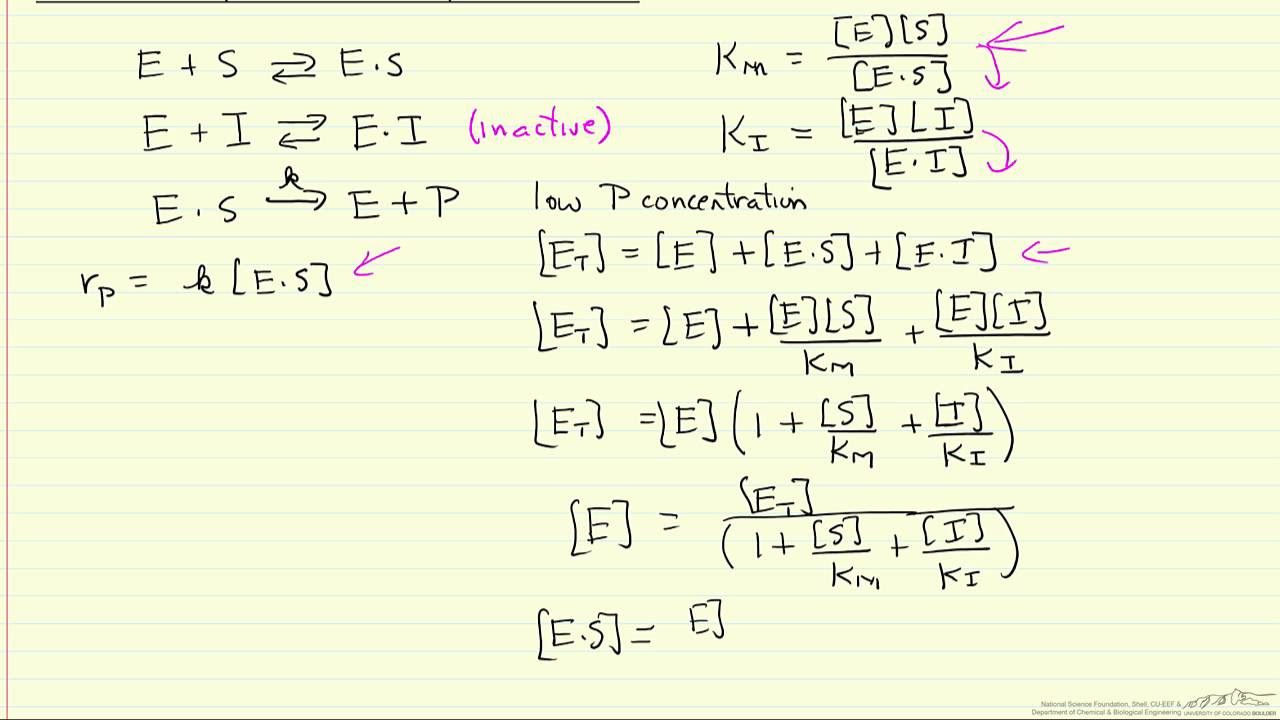 E + S ⇄ E·S
K_m = [E][S] / [E·S]
E + I ⇄ E·I (inactive)
K_I = [E][I] / [E·I]
E·S —k→ E + P
low P concentration
r_p = k [E·S]
[E_T] = [E] + [E·S] + [E·I]
[E_T] = [E] + [E][S] / K_M + [E][I] / K_I
[E_T] = [E] (1 + [S] / K_M + [I] / K_I)
[E] = [E_T] / (1 + [S] / K_M + [I] / K_I)
[E·S] = E]
National Science Foundation, Shell, CU-EEF &
Department of Chemical & Biological Engineering UNIVERSITY OF COLORADO BOULDER